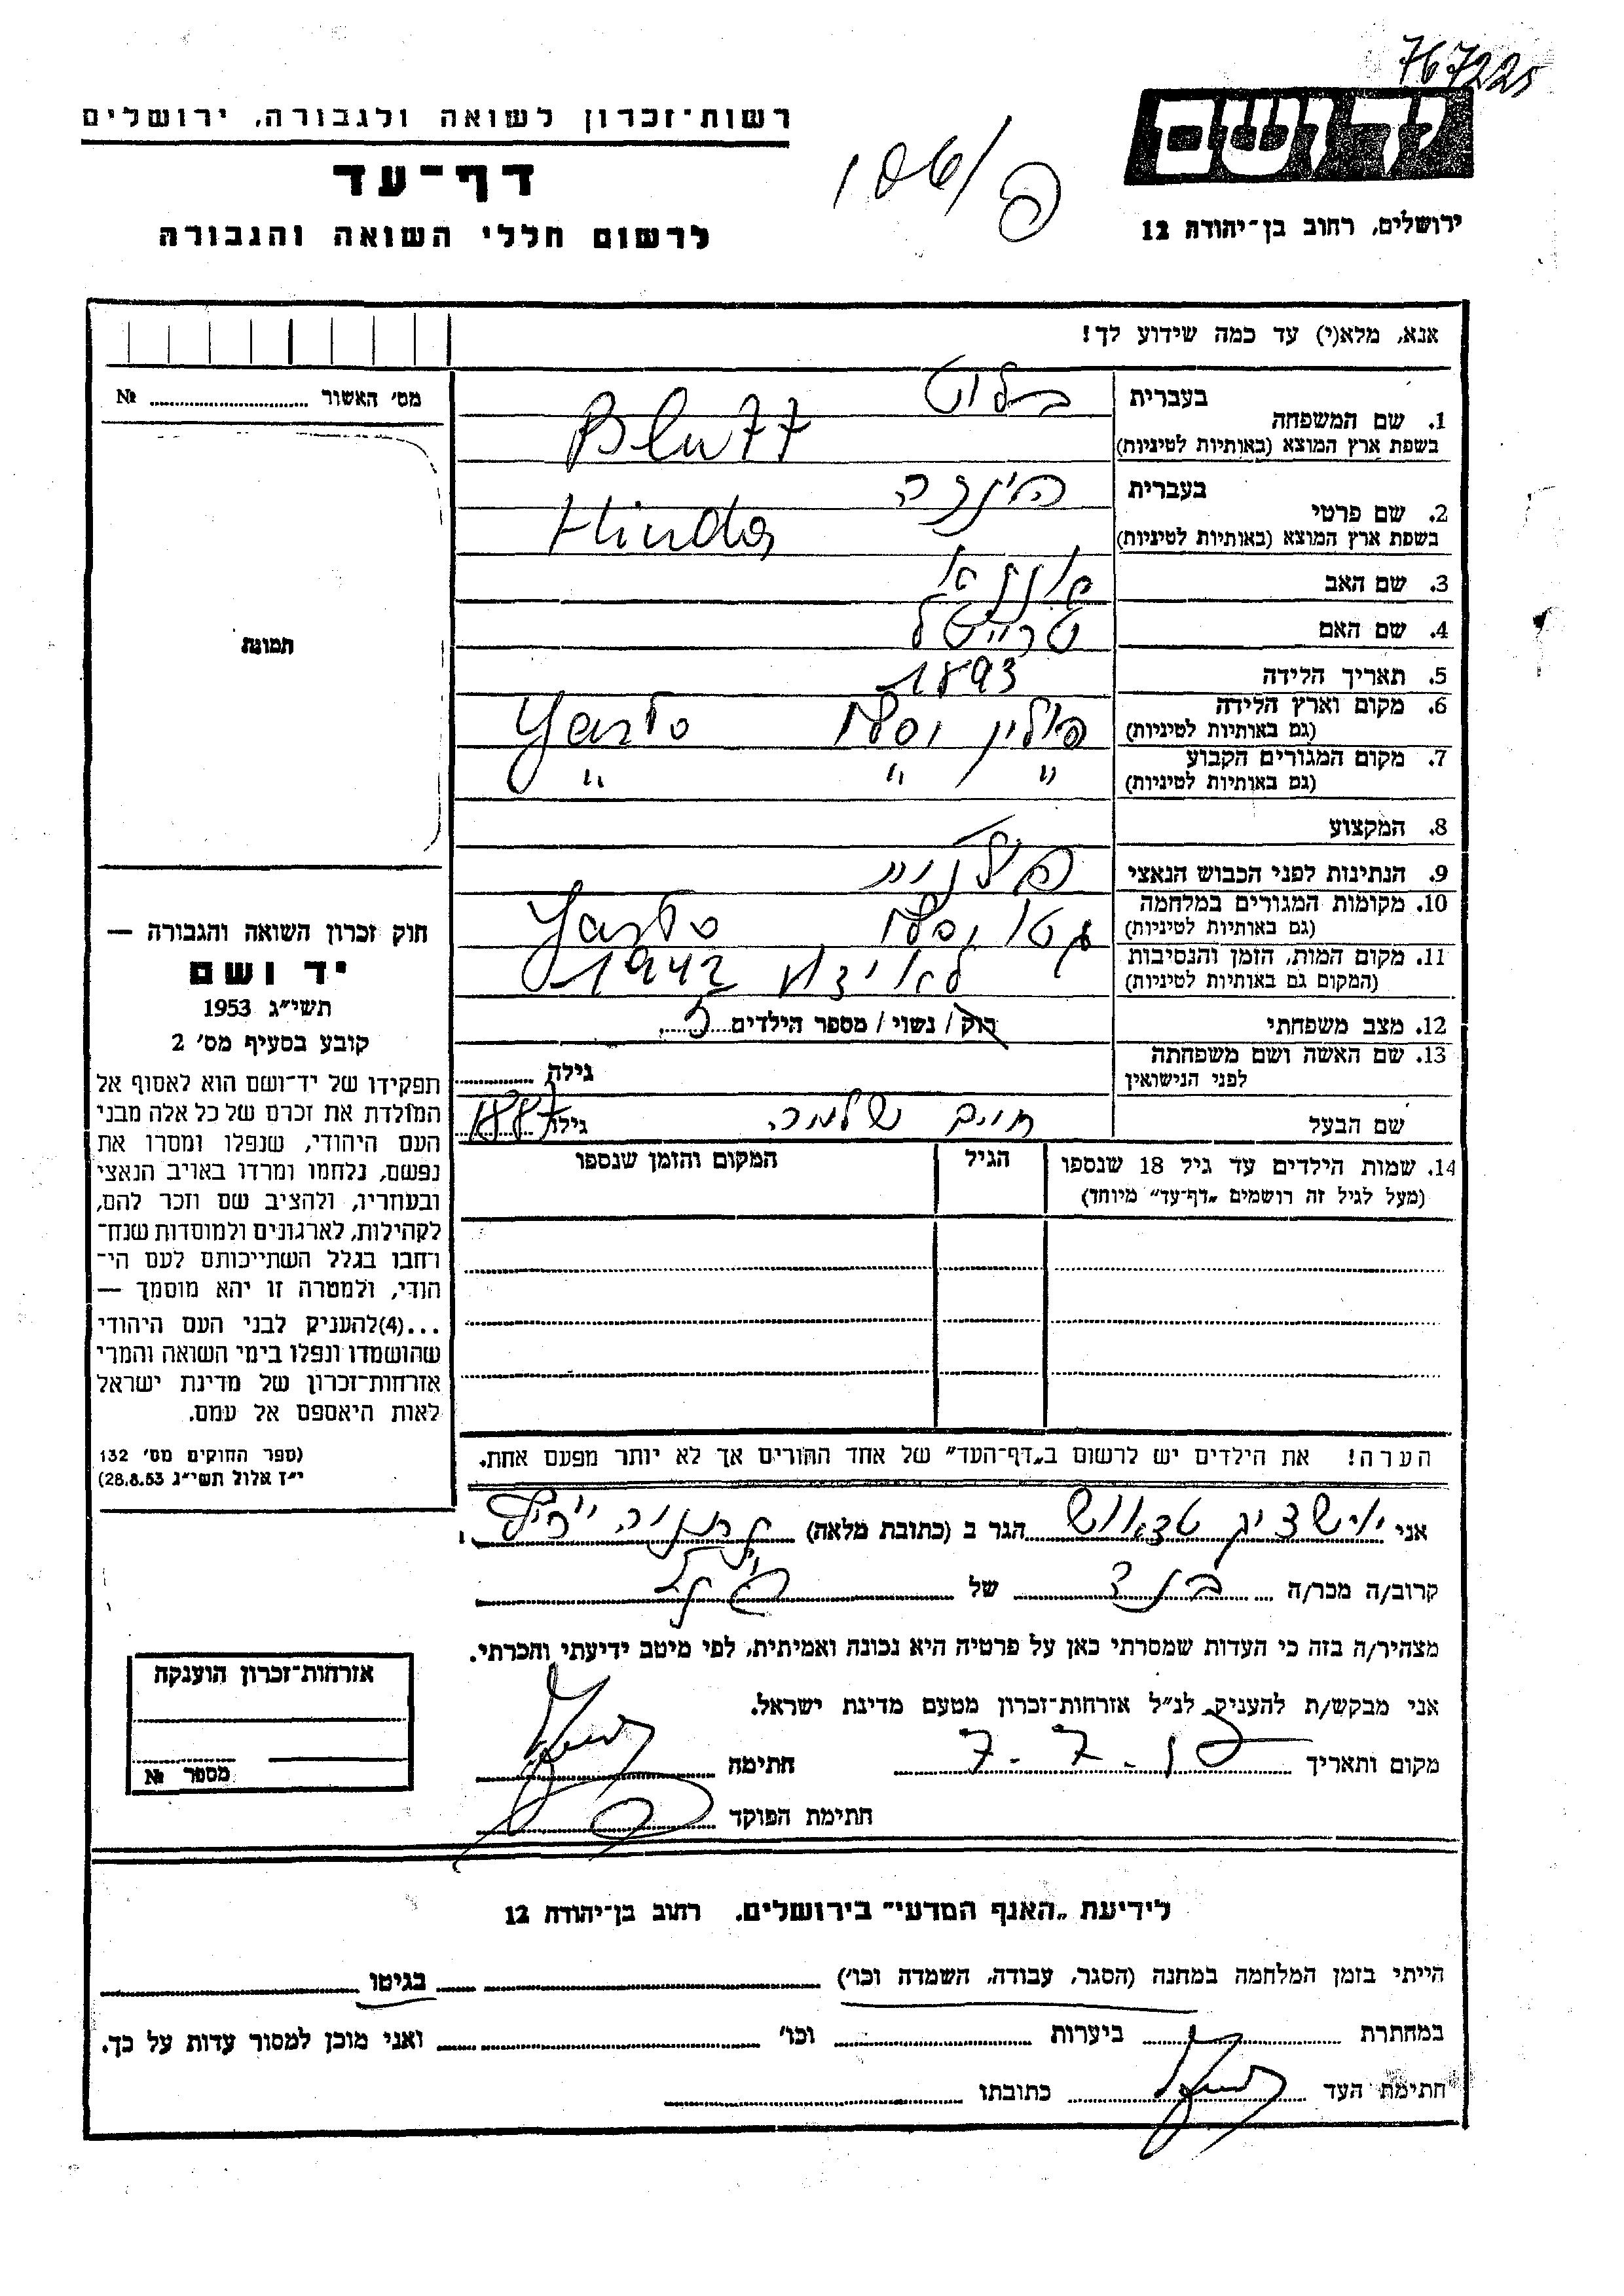 767225
יד ושם
ירושלים, רחוב בן־יהודה 12
רשות־זכרון לשואה ולגבורה, ירושלים
דף־עד
לרשום חללי השואה והגבורה
אנא, מלא(י) עד כמה שידוע לך!
מס' האשור № ........
תמונה
1. שם המשפחה
בעברית בלוט
בשפת ארץ המוצא (באותיות לטיניות) Blutt
2. שם פרטי
בעברית הינדה
בשפת ארץ המוצא (באותיות לטיניות) Hinda
3. שם האב
4. שם האם טרייטל
5. תאריך הלידה 1893
6. מקום וארץ הלידה פולין יסלו Yaslo
(גם באותיות לטיניות)
7. מקום המגורים הקבוע " " "
(גם באותיות לטיניות)
8. המקצוע
9. הנתינות לפני הכבוש הנאצי פולנית
10. מקומות המגורים במלחמה גטו יסלו Yaslo
(גם באותיות לטיניות)
11. מקום המות, הזמן והנסיבות 1942
(המקום גם באותיות לטיניות)
12. מצב משפחתי רוק / נשוי / מספר הילדים 5
13. שם האשה ושם משפחתה
לפני הנישואין גילה ........
שם הבעל חיים שלמה גילו 1887
14. שמות הילדים עד גיל 18 שנספו הגיל המקום והזמן שנספו
(מעל לגיל זה רושמים „דף־עד" מיוחד)
הערה! את הילדים יש לרשום ב„דף־העד" של אחד ההורים אך לא יותר מפעם אחת.
חוק זכרון השואה והגבורה —
יד ושם
תשי"ג 1953
קובע בסעיף מס' 2
תפקידו של יד־ושם הוא לאסוף אל
המולדת את זכרם של כל אלה מבני
העם היהודי, שנפלו ומסרו את
נפשם, נלחמו ומרדו באויב הנאצי
ובעוזריו, ולהציב שם וזכר להם,
לקהילות, לארגונים ולמוסדות שנח־
רבו בגלל השתייכותם לעם הי־
הודי, ולמטרה זו יהא מוסמך —
...(4)להעניק לבני העם היהודי
שהושמדו ונפלו בימי השואה והמרי
אזרחות־זכרון של מדינת ישראל
לאות היאספם אל עמם.
(ספר החוקים מס' 132
י"ז אלול תשי"ג 28.8.53)
אני טדאוש הגר ב (כתובת מלאה) נתניה
קרוב/ה מכר/ה של
מצהיר/ה בזה כי העדות שמסרתי כאן על פרטיה היא נכונה ואמיתית, לפי מיטב ידיעתי והכרתי.
אני מבקש/ת להעניק לנ"ל אזרחות־זכרון מטעם מדינת ישראל.
מקום ותאריך 7.7. חתימה
חתימת הפוקד
אזרחות־זכרון הוענקה
מספר №
לידיעת „האגף המדעי" בירושלים. רחוב בן־יהודה 12
הייתי בזמן המלחמה במחנה (הסגר, עבודה, השמדה וכו') ........ בגיטו ........
במחתרת ........ ביערות ........ וכו' ........ ואני מוכן למסור עדות על כך.
חתימת העד ........ כתובתו ........